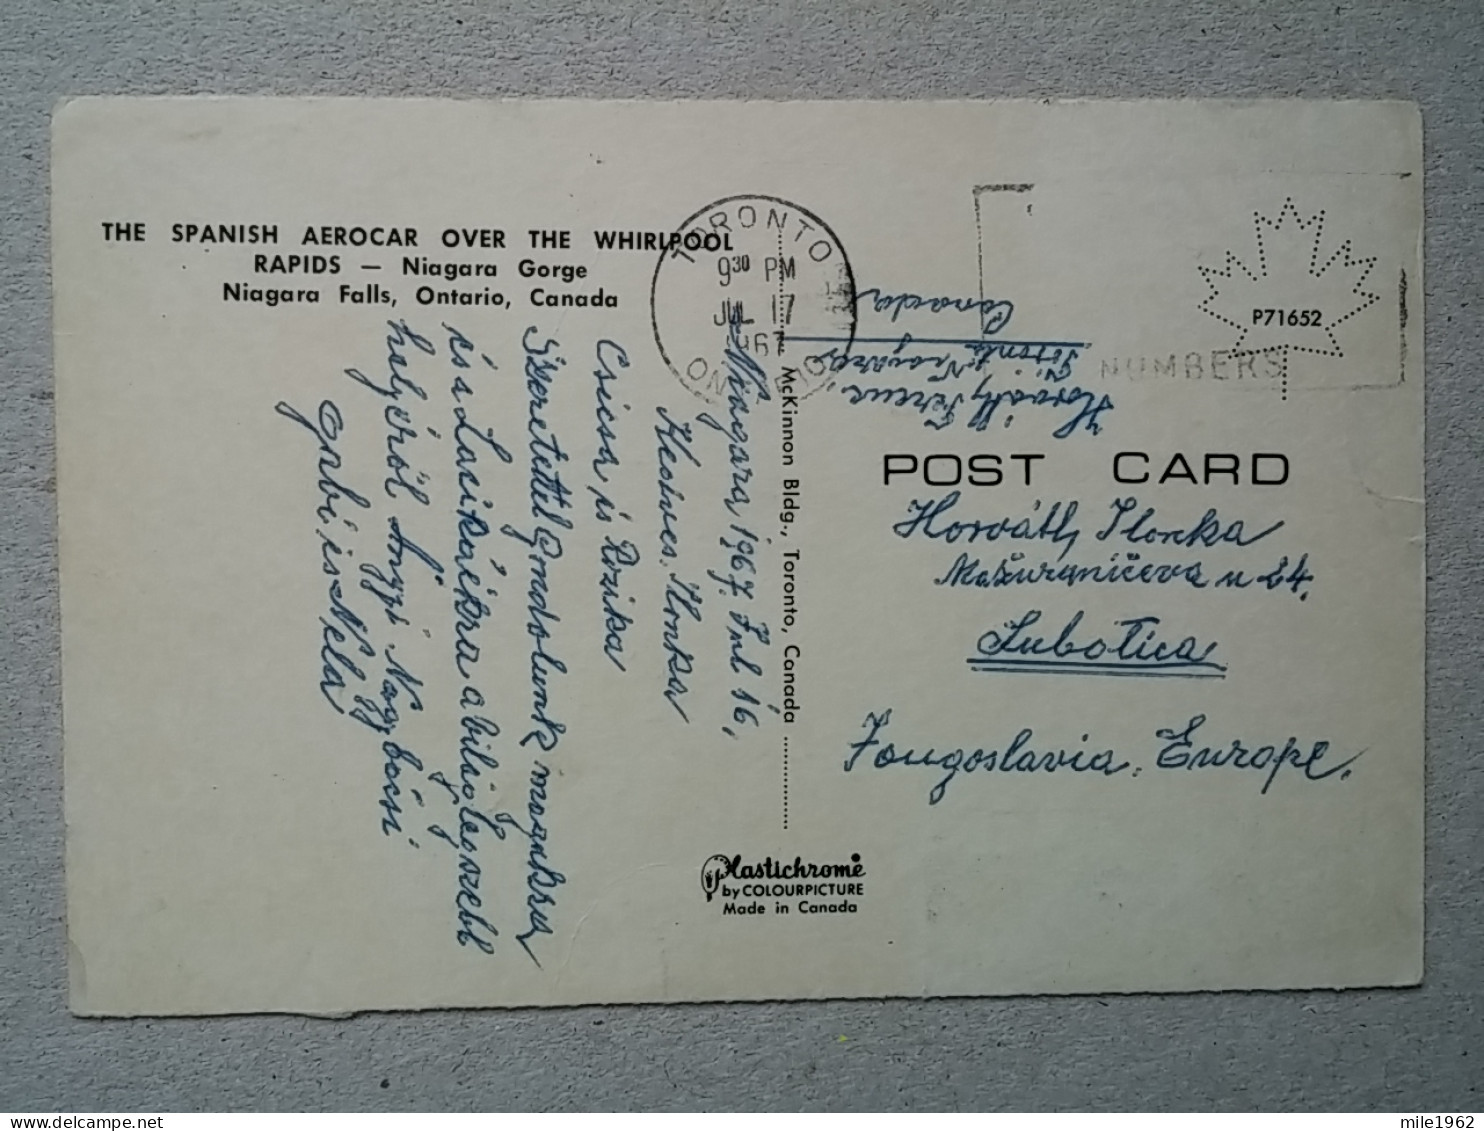 THE SPANISH AEROCAR OVER THE WHIRLPOOL
RAPIDS — Niagara Gorge
Niagara Falls, Ontario, Canada
TORONTO
9 30 PM
JUL 17
196
ONTARIO
NUMBERS
P71652
Horváth Ferenc
Toronto Niagara
Canada
POST CARD
Horváth Ilonka
Mažuranićeva u 24.
Subotica
Jougoslavia. Europe.
Niagara 1967 Jul 16,
Kedves Ilonka
Csicsa és Rozika
Szeretettel gondolunk magukra
és a Lacikáékra a világ legszebb
helyéről Angyi Nagybácsi
Gabi is Nela
McKinnon Bldg., Toronto, Canada
Plastichrome
by COLOURPICTURE
Made in Canada
mile1962